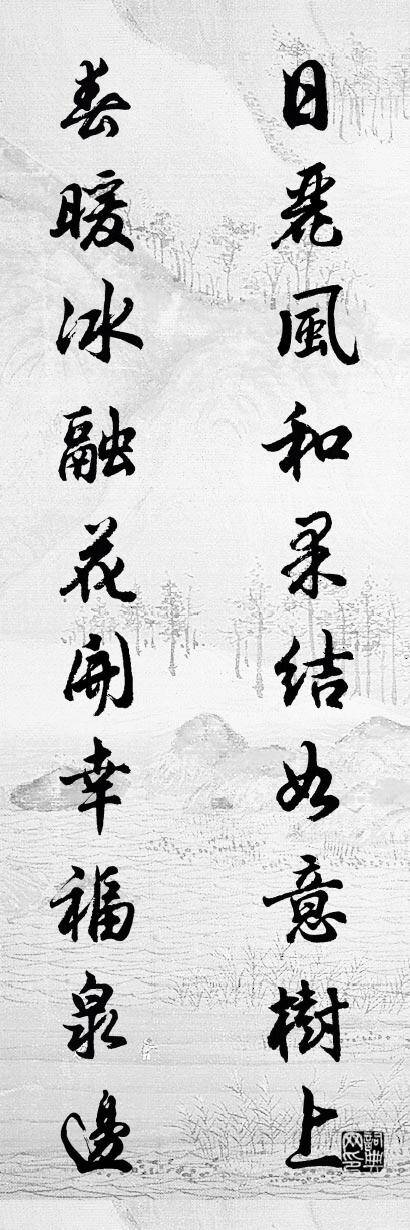 日麗風和果結如意樹上
春暖冰融花開幸福泉邊
詞典网印